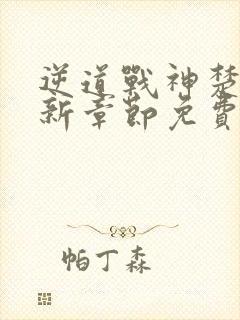 逆道戰神楚
新章節免費
帕丁森